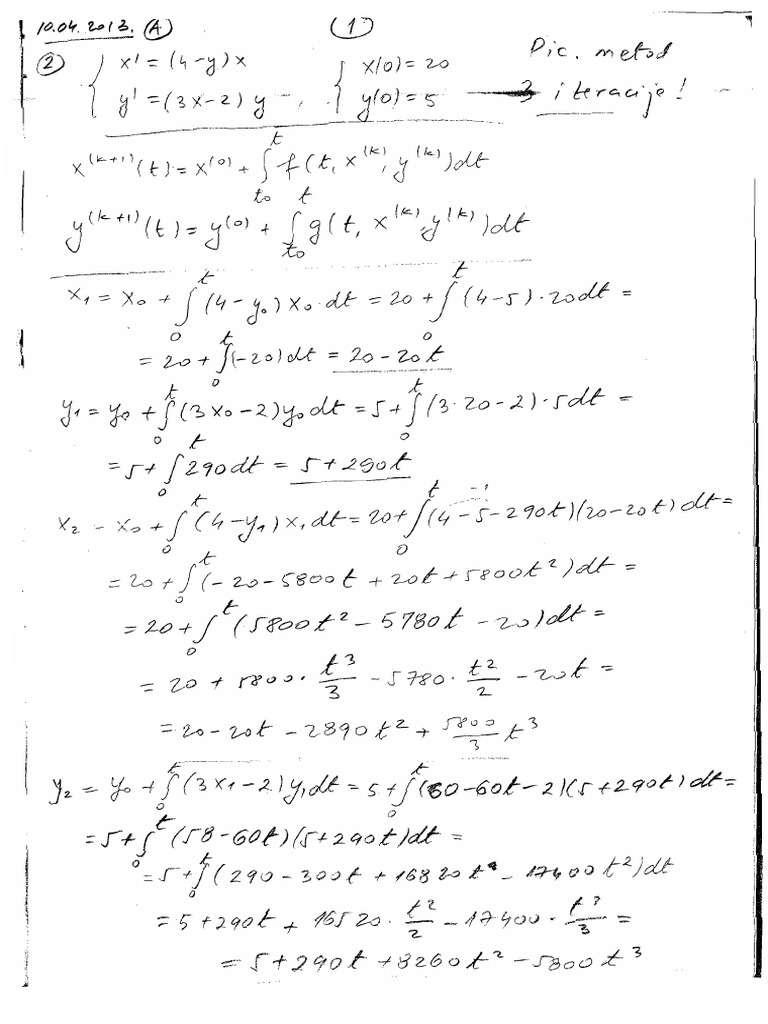 10.04.2013. (A) (1)
(2) { x' = (4-y)x { x(0) = 20 Pic. metod
y' = (3x-2)y y(0) = 5 → 3 iteracije!
x^(k+1)(t) = x^(0) + ∫_{t0}^{t} f(t, x^(k), y^(k))dt
y^(k+1)(t) = y^(0) + ∫_{t0}^{t} g(t, x^(k), y^(k))dt
x₁ = x₀ + ∫₀^t (4-y₀)x₀·dt = 20 + ∫₀^t (4-5)·20dt =
= 20 + ∫₀^t (-20)dt = 20-20t
y₁ = y₀ + ∫₀^t (3x₀-2)y₀dt = 5 + ∫₀^t (3·20-2)·5dt =
= 5 + ∫₀^t 290dt = 5+290t
x₂ = x₀ + ∫₀^t (4-y₁)x₁dt = 20 + ∫₀^t (4-5-290t)(20-20t)dt =
-1
= 20 + ∫₀^t (-20-5800t+20t+5800t²)dt =
= 20 + ∫₀^t (5800t²-5780t-20)dt =
= 20 + 5800· t³/3 - 5780· t²/2 - 20t =
= 20-20t-2890t² + 5800/3 t³
y₂ = y₀ + ∫₀^t (3x₁-2)y₁dt = 5 + ∫₀^t (60-60t-2)(5+290t)dt =
= 5 + ∫₀^t (58-60t)(5+290t)dt =
= 5 + ∫₀^t (290-300t+16820t-17400t²)dt
= 5+290t+16520· t²/2 - 17400· t³/3 =
= 5+290t+8260t²-5800t³